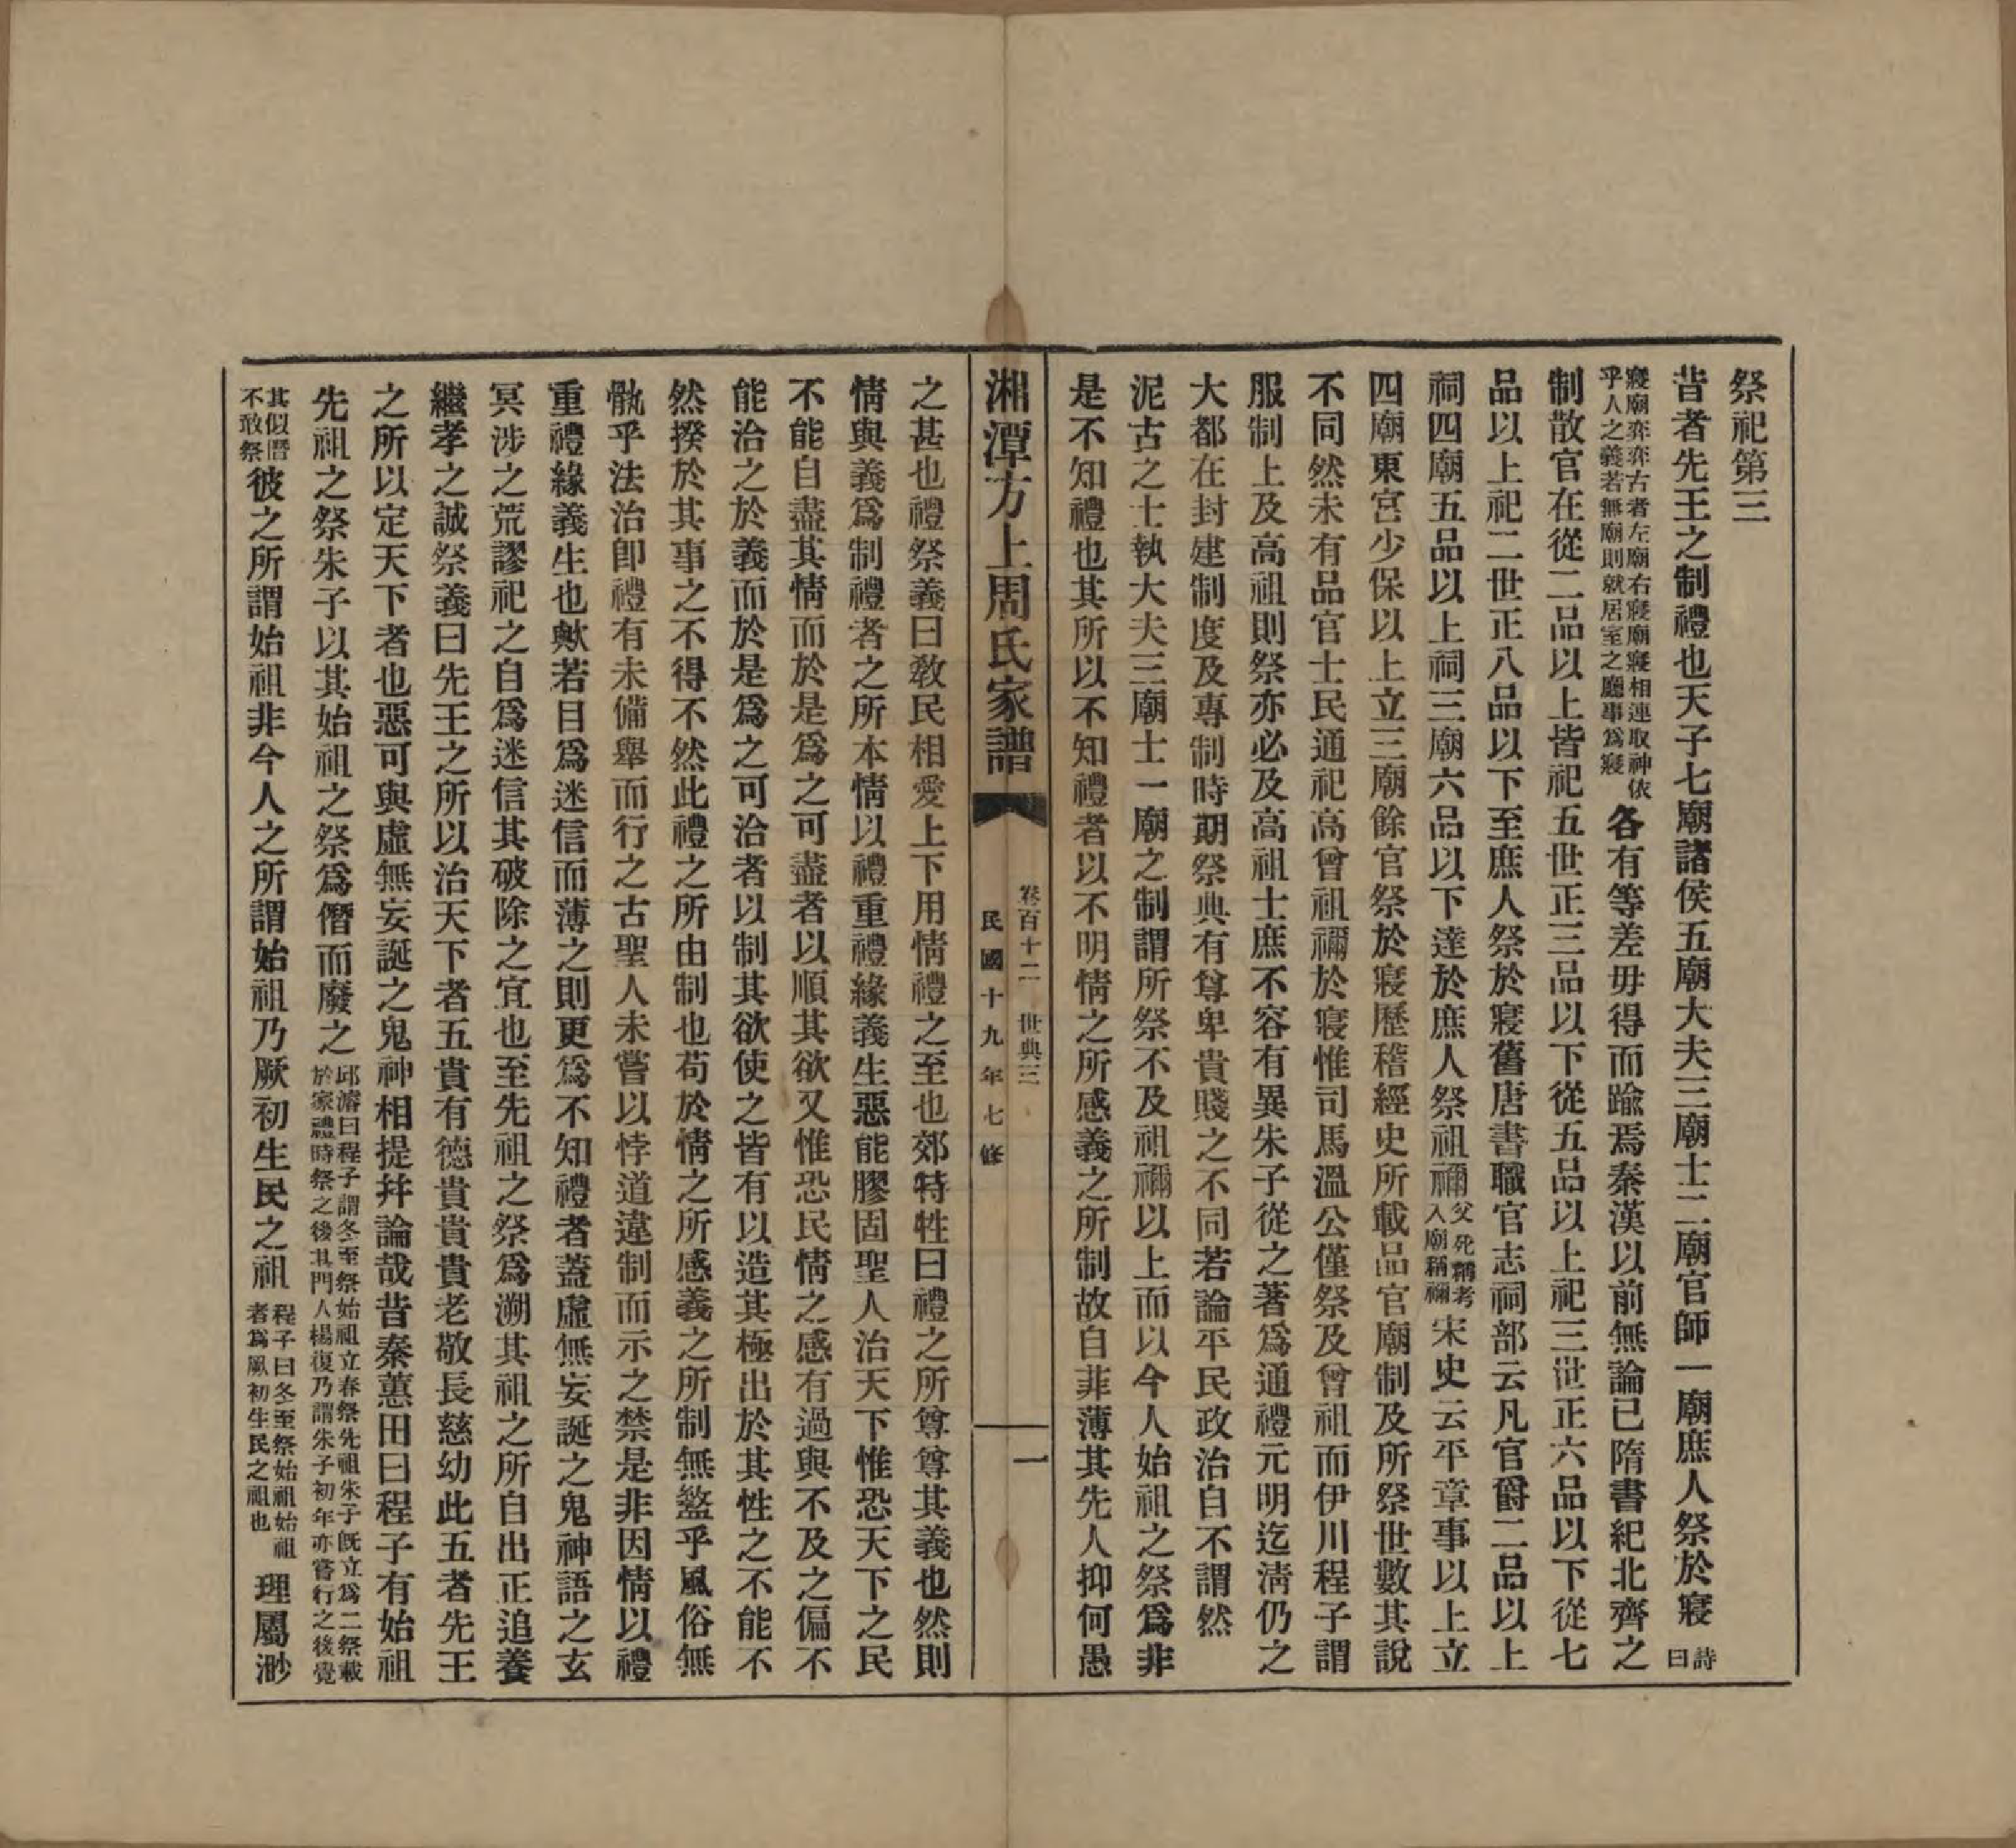 祭祀第三
昔者先王之制禮也天子七廟諸侯五廟大夫三廟士二廟官師一廟庶人祭於寢詩曰
寢廟弈弈右者左廟右寢廟寢相連取神依乎人之義若無廟則就居室之廳事爲寢各有等差毋得而踰焉秦漢以前無論已隋書紀北齊之
制散官在從二品以上皆祀五世正三品以下從五品以上祀三世正六品以下從七
品以上祀二世正八品以下至庶人祭於寢舊唐書職官志祠部云凡官爵二品以上
祠四廟五品以上祠三廟六品以下達於庶人祭祖禰父死稱考入廟稱禰宋史云平章事以上立
四廟東宮少保以上立三廟餘官祭於寢歷稽經史所載品官廟制及所祭世數其說
不同然未有品官士民通祀高曾祖禰於寢惟司馬溫公僅祭及曾祖而伊川程子謂
服制上及高祖則祭亦必及高祖士庶不容有異朱子從之著爲通禮元明迄淸仍之
大都在封建制度及專制時期祭典有尊卑貴賤之不同若論平民政治自不謂然
泥古之士執大夫三廟士一廟之制謂所祭不及祖禰以上而以今人始祖之祭爲非
是不知禮也其所以不知禮者以不明情之所感義之所制故自菲薄其先人抑何愚
湘潭方上周氏家譜
卷百十二 世典三
民國十九年七修
一
之甚也禮祭義曰敎民相愛上下用情禮之至也郊特牲曰禮之所尊尊其義也然則
情與義爲制禮者之所本情以禮重禮緣義生惡能膠固聖人治天下惟恐天下之民
不能自盡其情而於是爲之可盡者以順其欲又惟恐民情之感有過與不及之偏不
能洽之於義而於是爲之可洽者以制其欲使之皆有以造其極出於其性之不能不
然揆於其事之不得不然此禮之所由制也苟於情之所感義之所制無盭乎風俗無
骫乎法治卽禮有未備舉而行之古聖人未嘗以悖道違制而示之禁是非因情以禮
重禮緣義生也歟若目爲迷信而薄之則更爲不知禮者蓋虛無妄誕之鬼神語之玄
冥涉之荒謬祀之自爲迷信其破除之宜也至先祖之祭爲溯其祖之所自出正追養
繼孝之誠祭義曰先王之所以治天下者五貴有德貴貴貴老敬長慈幼此五者先王
之所以定天下者也惡可與虛無妄誕之鬼神相提幷論哉昔秦蕙田曰程子有始祖
先祖之祭朱子以其始祖之祭爲僭而廢之邱濬曰程子謂冬至祭始祖立春祭先祖朱子旣立爲二祭載於家禮時祭之後其門人楊復乃謂朱子初年亦嘗行之後覺
其似僭不敢祭彼之所謂始祖非今人之所謂始祖乃厥初生民之祖程子曰冬至祭始祖始祖者爲厥初生民之祖也理屬渺